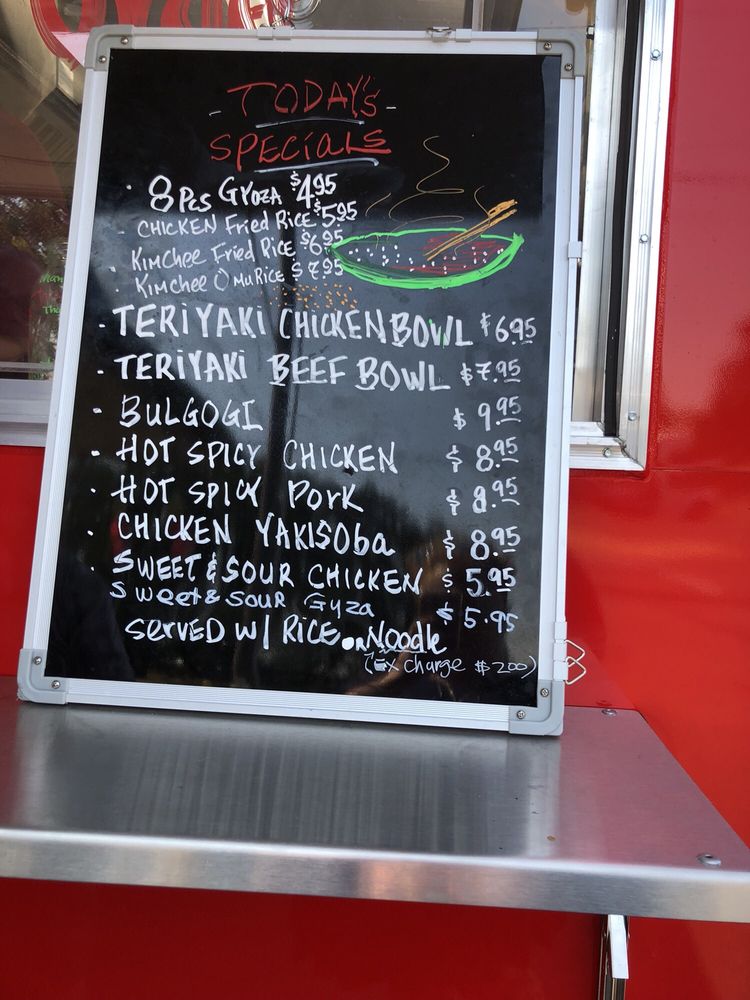 - TODAY'S -
SPECIALS
· 8 Pcs GYOZA $4.95
· CHICKEN Fried Rice $5.95
· KimChee Fried Rice $6.95
· KimChee OmuRice $7.95
· TERIYAKI CHICKEN BOWL $6.95
· TERIYAKI BEEF BOWL $7.95
· BULGOGI $9.95
· HOT SPICY CHICKEN $8.95
· HOT SPICY PORK $8.95
· CHICKEN YAKISOba $8.95
· SWEET & SOUR CHICKEN $5.95
Sweet & SOUR Gyza $5.95
SERVED W/ RICE or Noodle
(Ex charge $200)